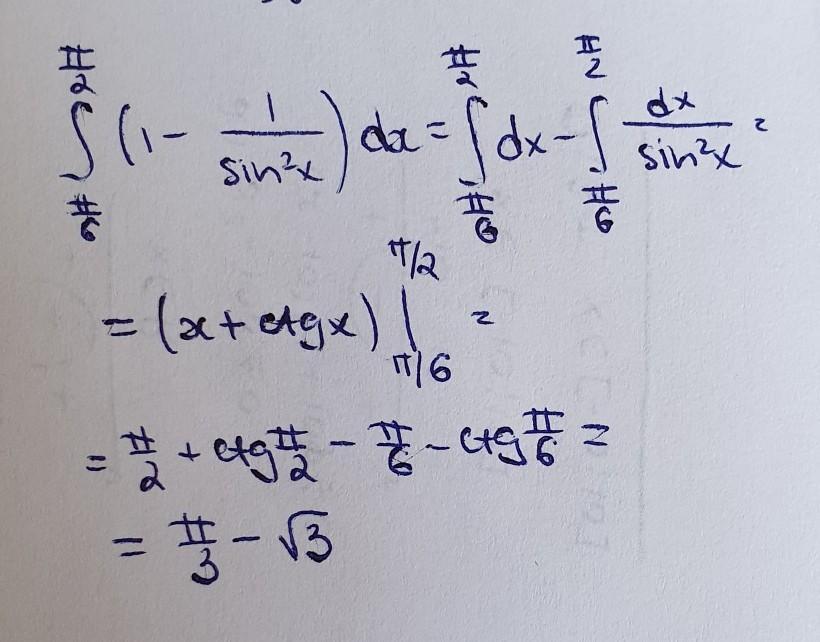 ∫_{π/6}^{π/2} (1 - 1/sin²x) dx = ∫_{π/6}^{π/2} dx - ∫_{π/6}^{π/2} dx/sin²x =
= (x + ctgx) |_{π/6}^{π/2} =
= π/2 + ctg π/2 - π/6 - ctg π/6 =
= π/3 - √3